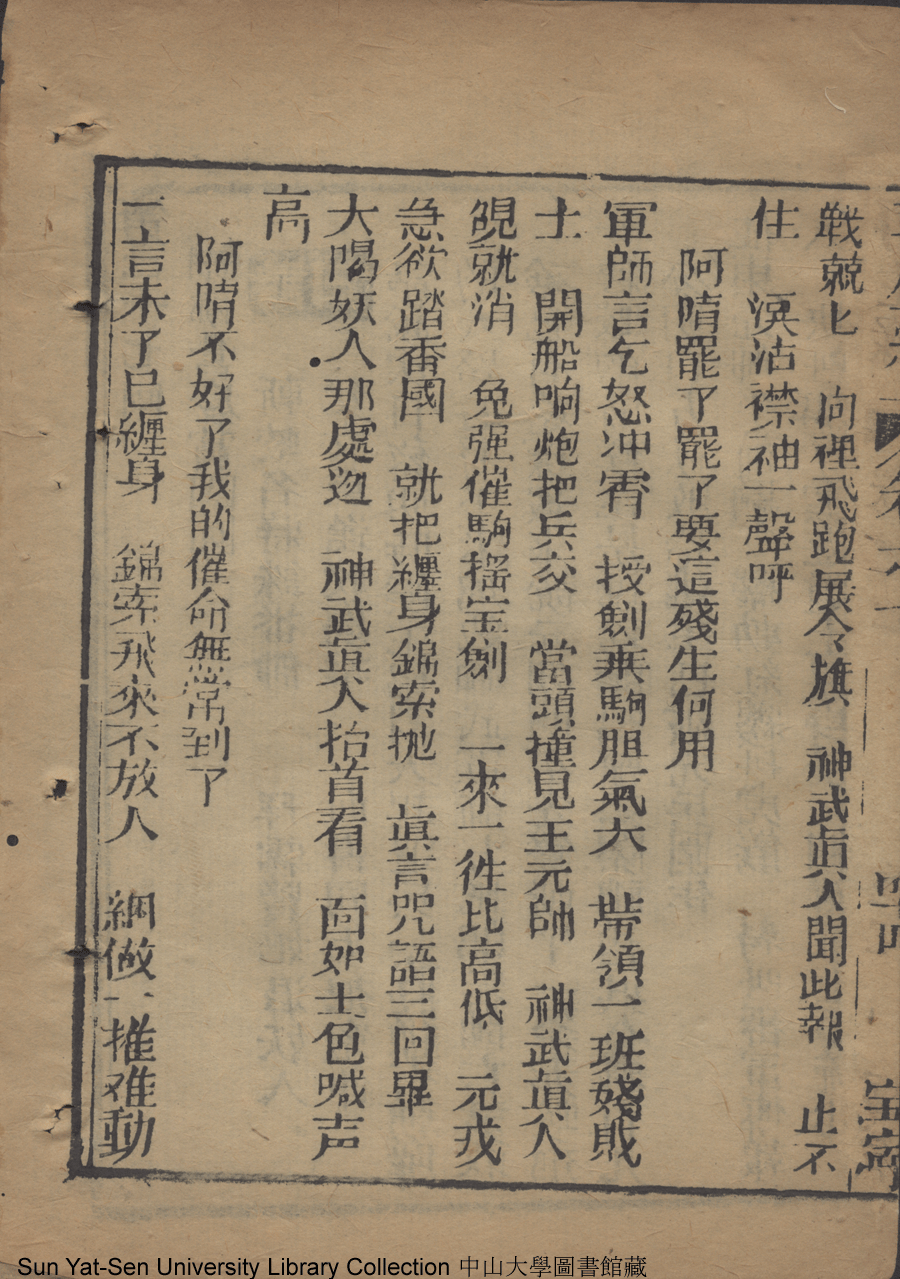 戰兢匕 向裡飛跑展令旗 神武眞人聞此報 止不
住 淚沾襟袖一聲呼
阿㖞罷了罷了要這殘生何用
軍師言乞怒冲霄 授劍乘駒胆氣大 带領一班殘敗
士 開船响炮把兵交 當頭撞見王元帥 神武眞人
魂就消 免强催駒揺宝劍 一來一徃比高低 元戎
急欲踏番國 就把纏身錦索抛 眞言咒語三回畢
大喝妖人那處逃 神武眞人抬首看 面如土色喊声
高
阿㖞不好了我的催命無常到了
一言未了已纏身 錦索飛來不放人 綑做一推难動
Sun Yat-Sen University Library Collection 中山大學圖書館藏